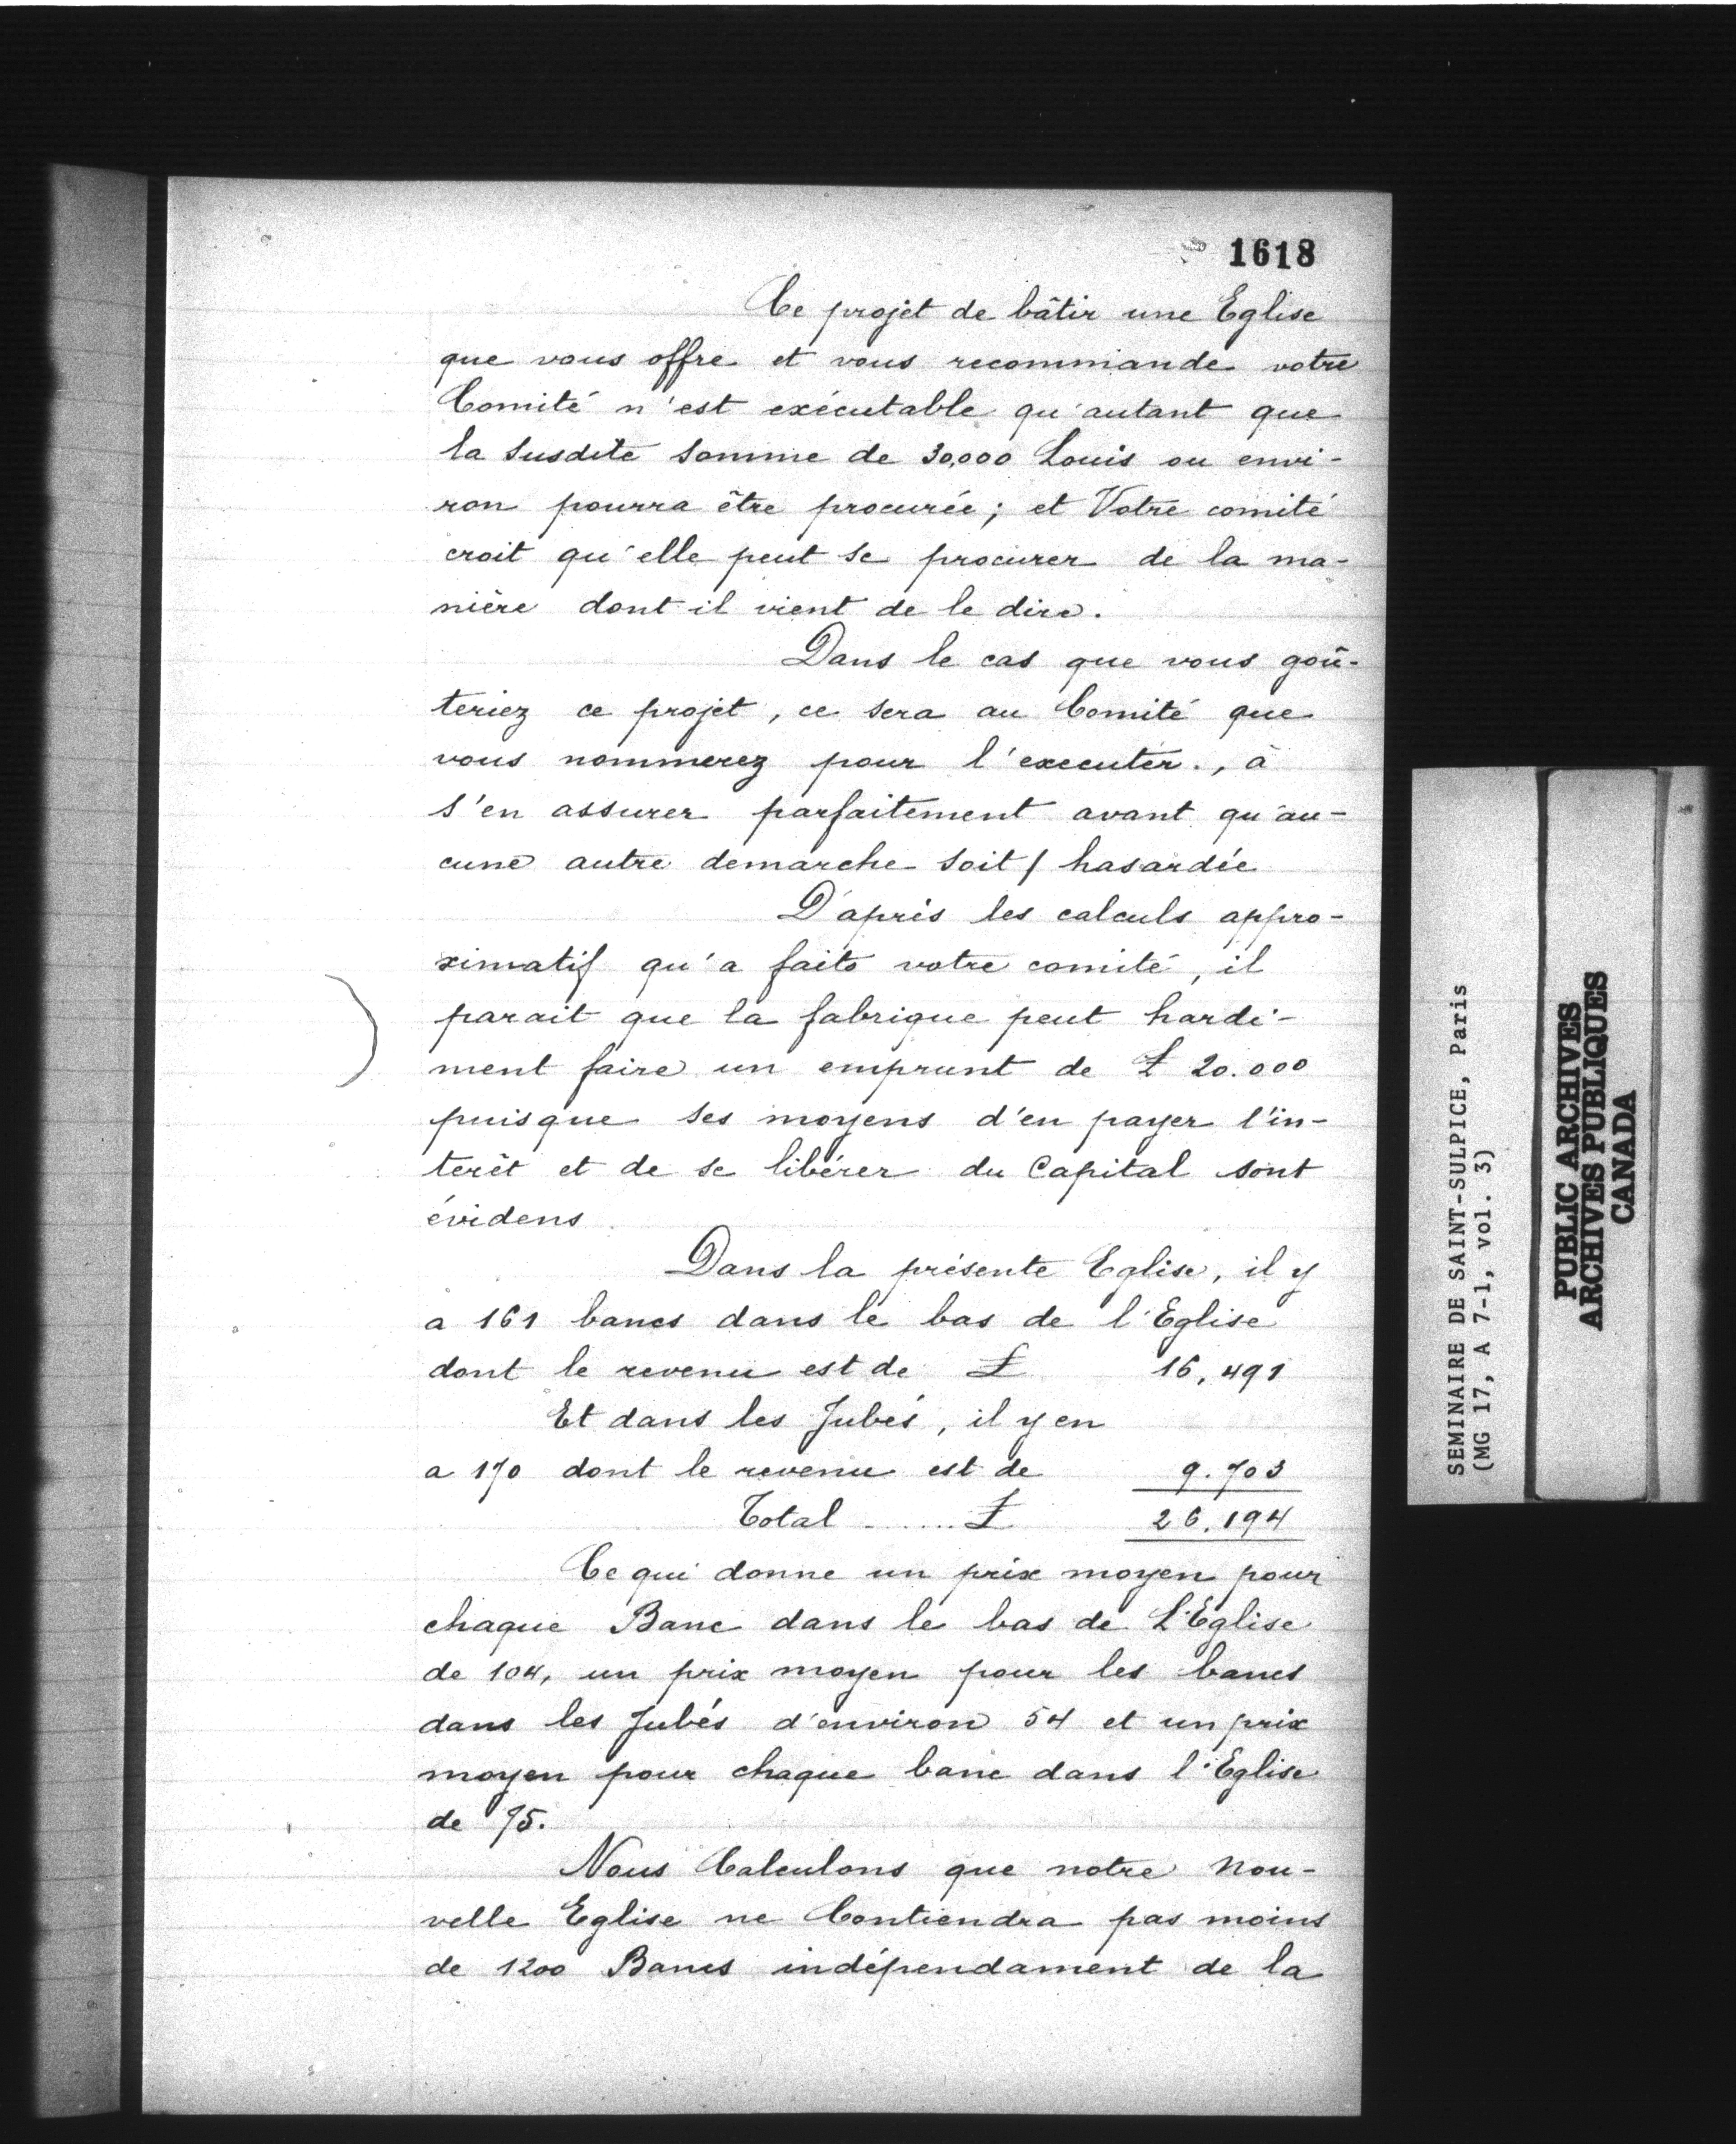 1618
Ce projet de bâtir une Eglise
que vous offre et vous recommande votre
Comité n'est exécutable qu'autant que
la susdite somme de 30,000 Louis ou envi-
ron pourra être procurée; et Votre comité
croit qu'elle peut se procurer de la ma-
nière dont il vient de le dire.
Dans le cas que vous goû-
teriez ce projet, ce sera au Comité que
vous nommerez pour l'executer., à
s'en assurer parfaitement avant qu'au-
cune autre demarche soit / hasardée
D'après les calculs appro-
ximatif qu'a faits votre comité, il
parait que la fabrique peut hardi-
ment faire un emprunt de £ 20.000
puisque ses moyens d'en payer l'in-
terêt et de se libérer du Capital sont
évidens
Dans la présente Eglise, il y
a 161 bancs dans le bas de l'Eglise
dont le revenu est de £ 16,491
Et dans les Jubés, il y en
a 170 dont le revenu est de 9.703
Total ...... £ 26.194
Ce qui donne un prix moyen pour
chaque Banc dans le bas de L'Eglise
de 104, un prix moyen pour les bancs
dans les Jubés d'environ 54 et un prix
moyen pour chaque banc dans l'Eglise
de 75.
Nous Calculons que notre nou-
velle Eglise ne Contiendra pas moins
de 1200 Bancs indépendament de la
SEMINAIRE DE SAINT-SULPICE, Paris
(MG 17, A 7-1, vol. 3)
PUBLIC ARCHIVES
ARCHIVES PUBLIQUES
CANADA